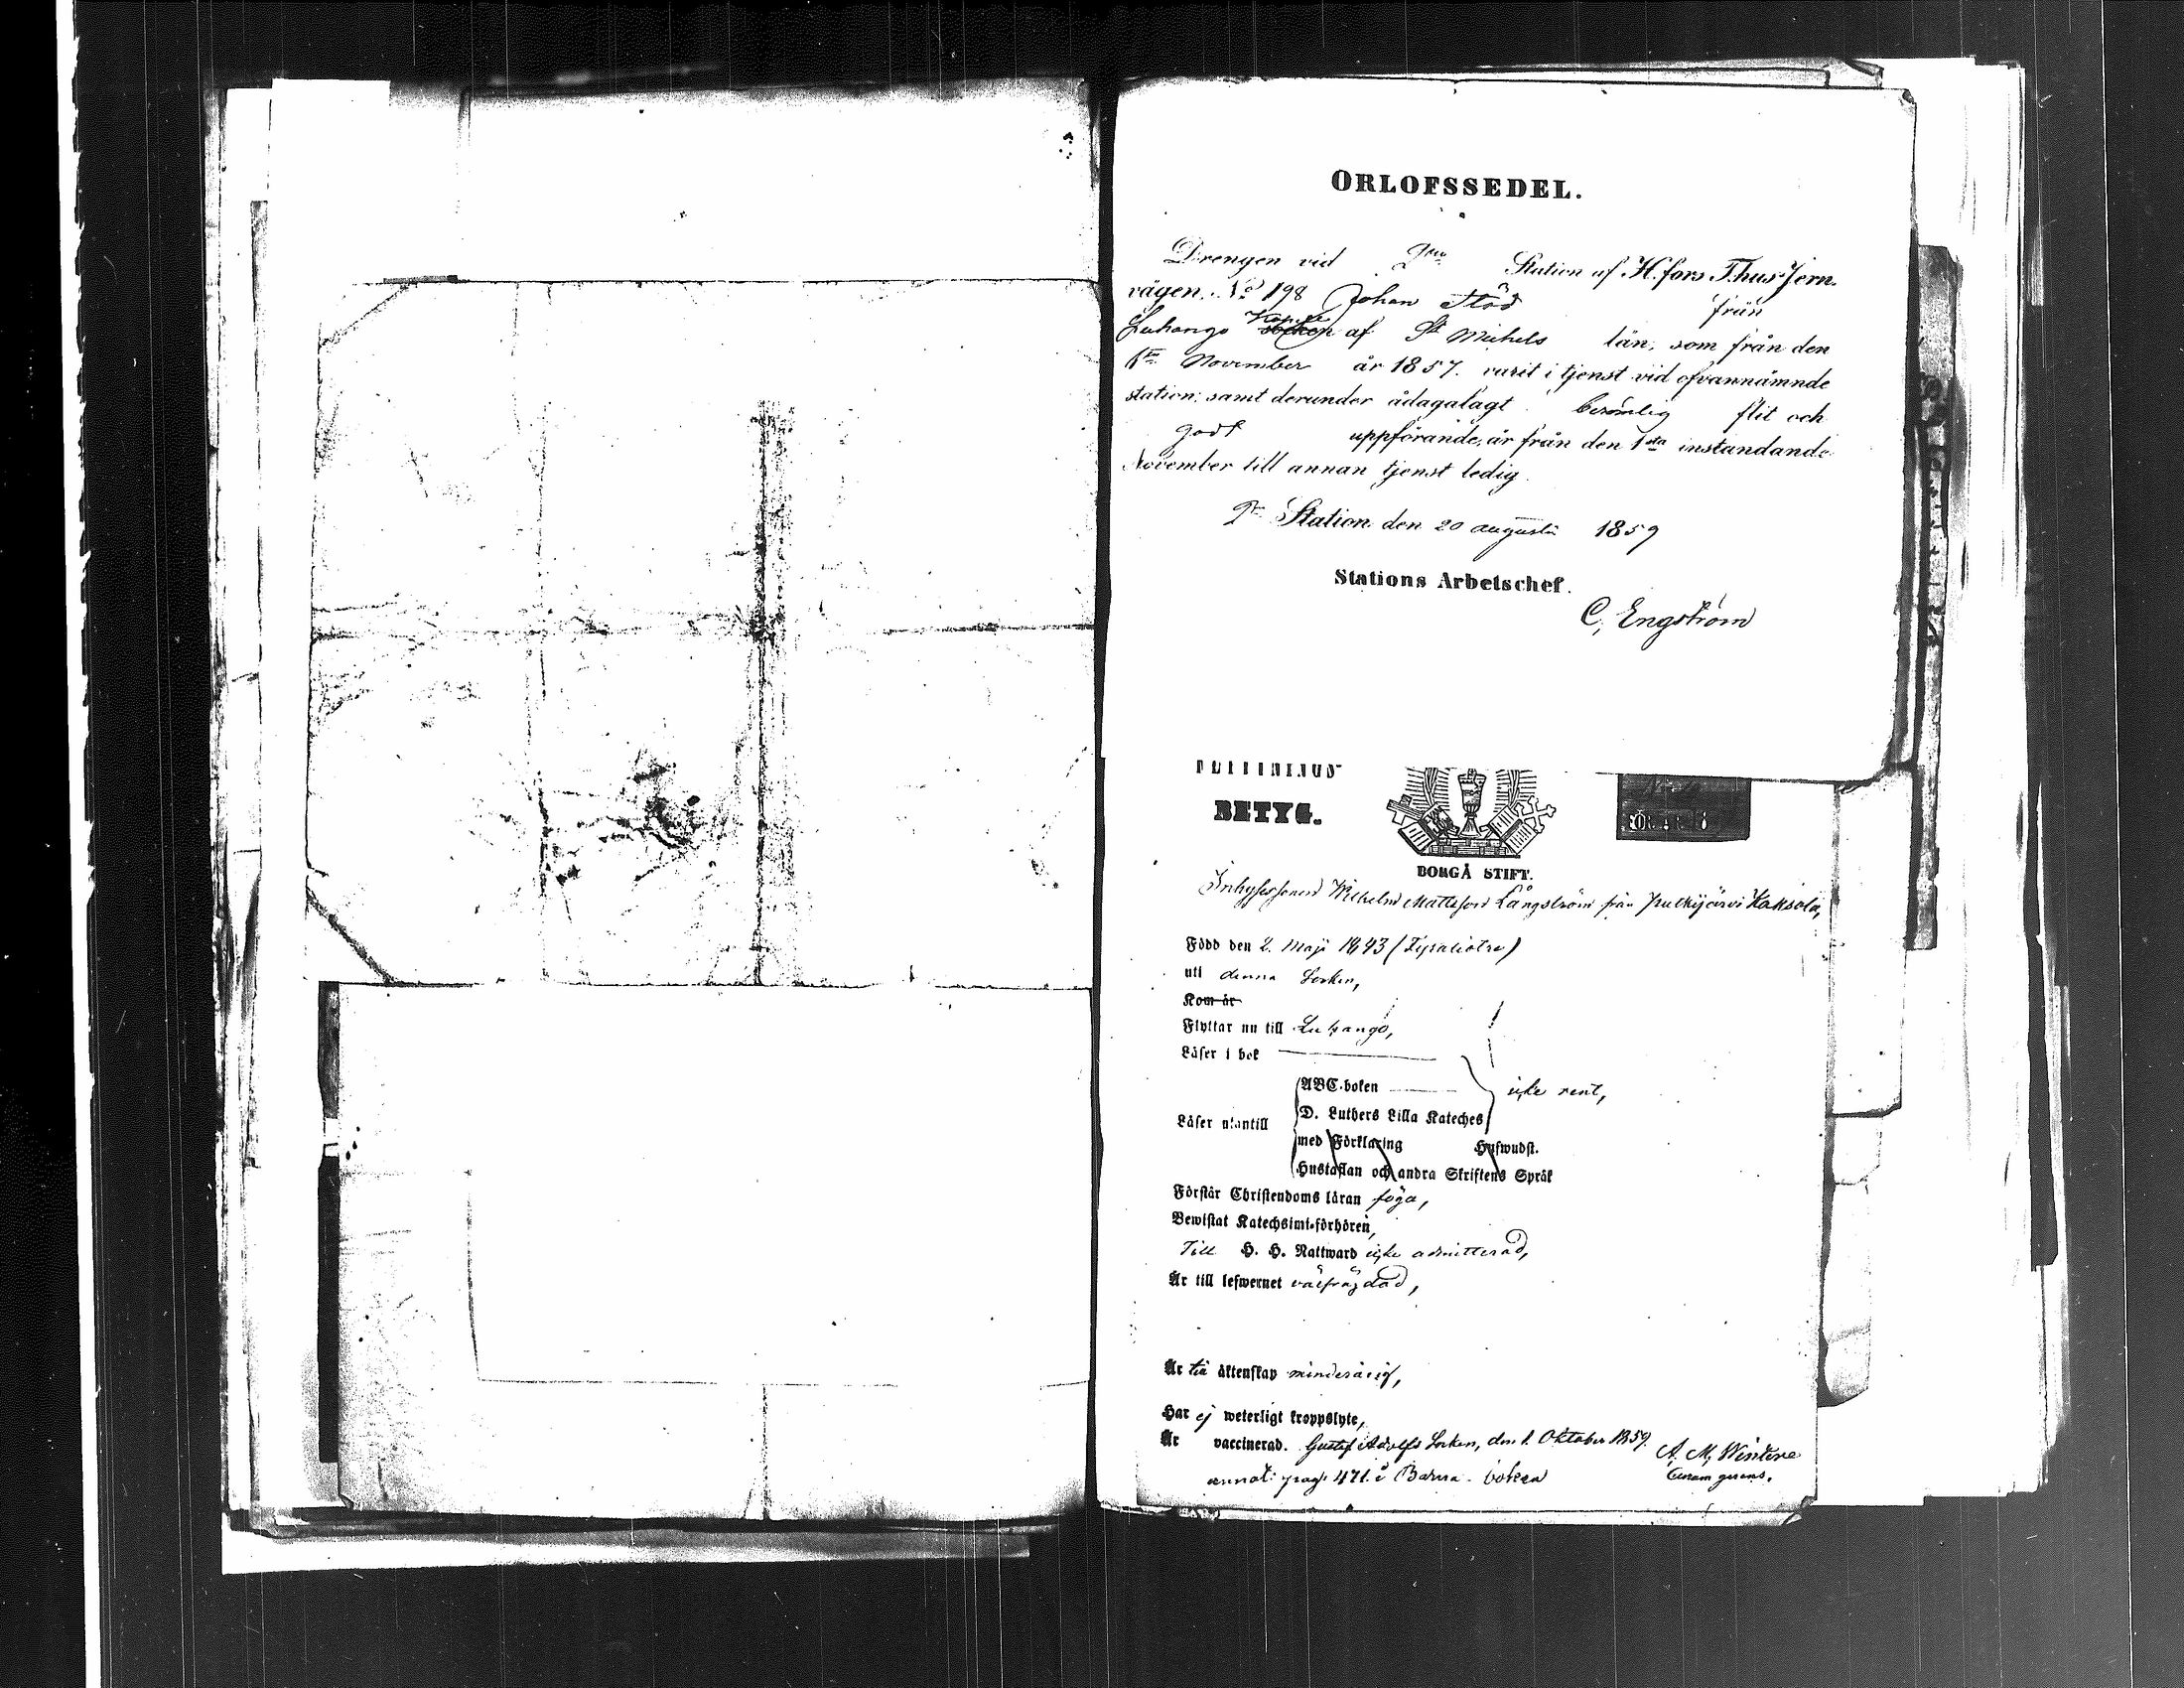 ORLOFSSEDEL.
Drengen vid 9de Station af H.fors T.hus Jern-
vägen. No 198 Johan Stöd från
Luhango Kapell af St Michels län, som från den
1ta November år 1857. varit i tjenst vid ofvannämnde
station; samt derunder ådagalagt berömlig flit och
godt uppförande, är från den 1sta instandande
November till annan tjenst ledig.
9de Station den 20 augusti 1859
Stations Arbetschef.
C. Engström
FLYTTNINGS-
BETYG.
BORGÅ STIFT.
Wilhelm Mattsson Långström från Pulkijärvi Kaksola,
Född den 2. Maji 1843
uti denna Socken,
Kom år
Flyttar nu till Luhango,
Läser i bok
ABC-boken icke rent,
Läser utantill D. Luthers Lilla Kateches
med Förklaring Hufwudst.
Hustaflan och andra Skriftens Språk
Förstår Christendoms läran föga,
Bewistat Katechsimi-förhören,
Till H. H. Nattward icke admitterad,
Är till lefwernet välfräjdad,
Är till äktenskap minderårig,
Har ej weterligt kroppslyte,
Är vaccinerad. Gustaf Adolfs Socken, den 1. Oktober 1859.
A. M. Windone
Curam gerens.
annot: pag: 471. i Barna-boken